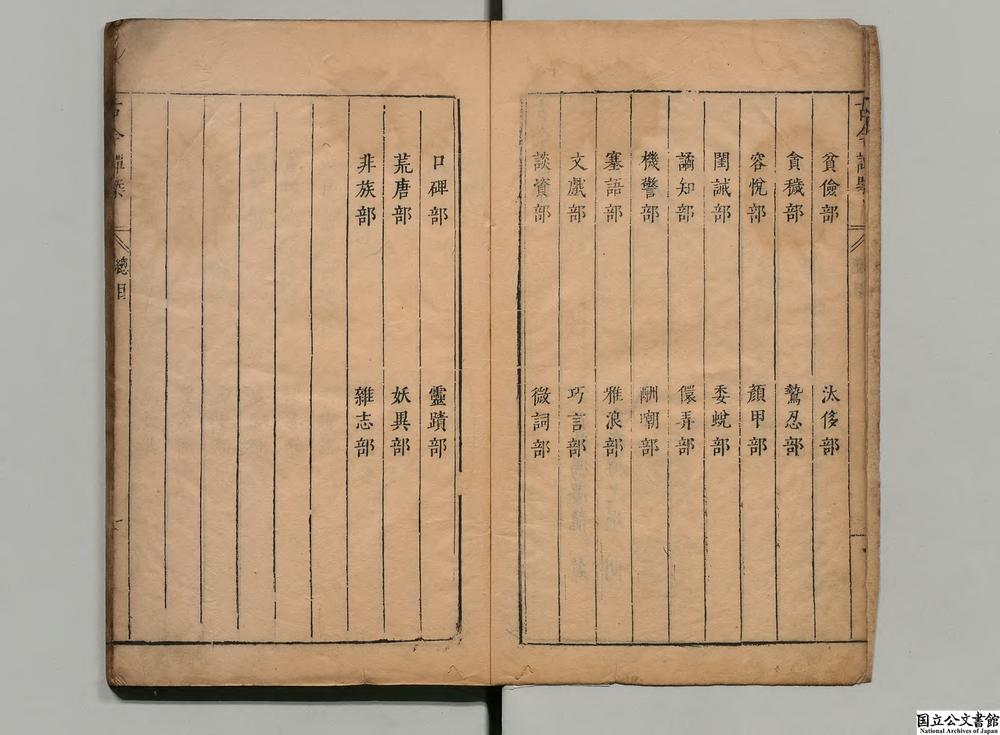 貧儉部 汰侈部
貪穢部 鷙忍部
容悅部 顏甲部
閨誡部 委蛻部
譎知部 儇弄部
機警部 酬嘲部
塞語部 雅浪部
文戲部 巧言部
談資部 微詞部
口碑部 靈蹟部
荒唐部 妖異部
非族部 雜志部
古今譚槩
總目
国立公文書館
National Archives of Japan